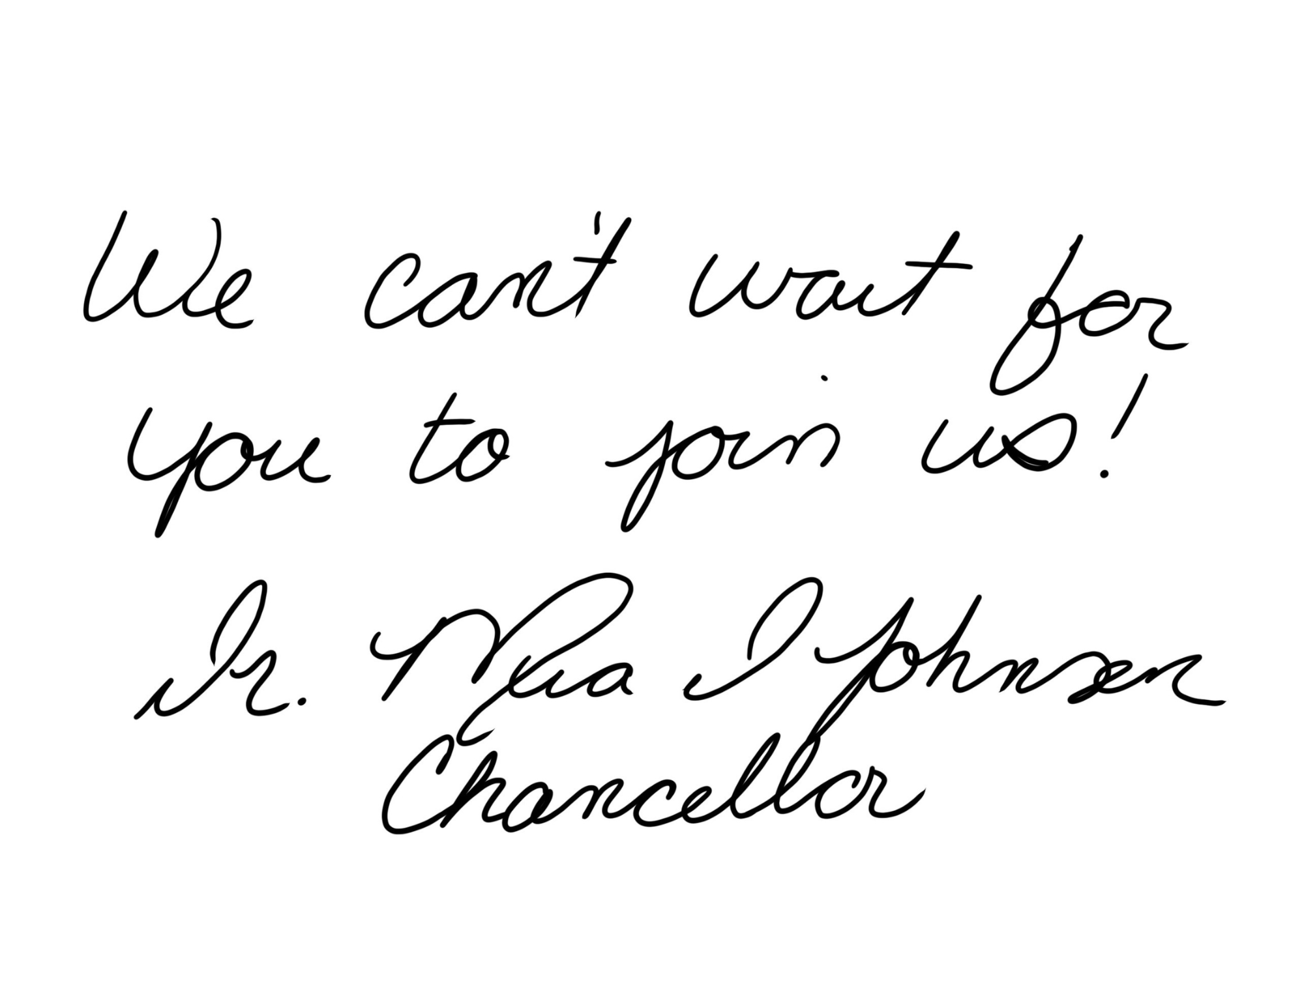 We can't wait for
you to join us!
Dr. Mia I Johnson
Chancellor